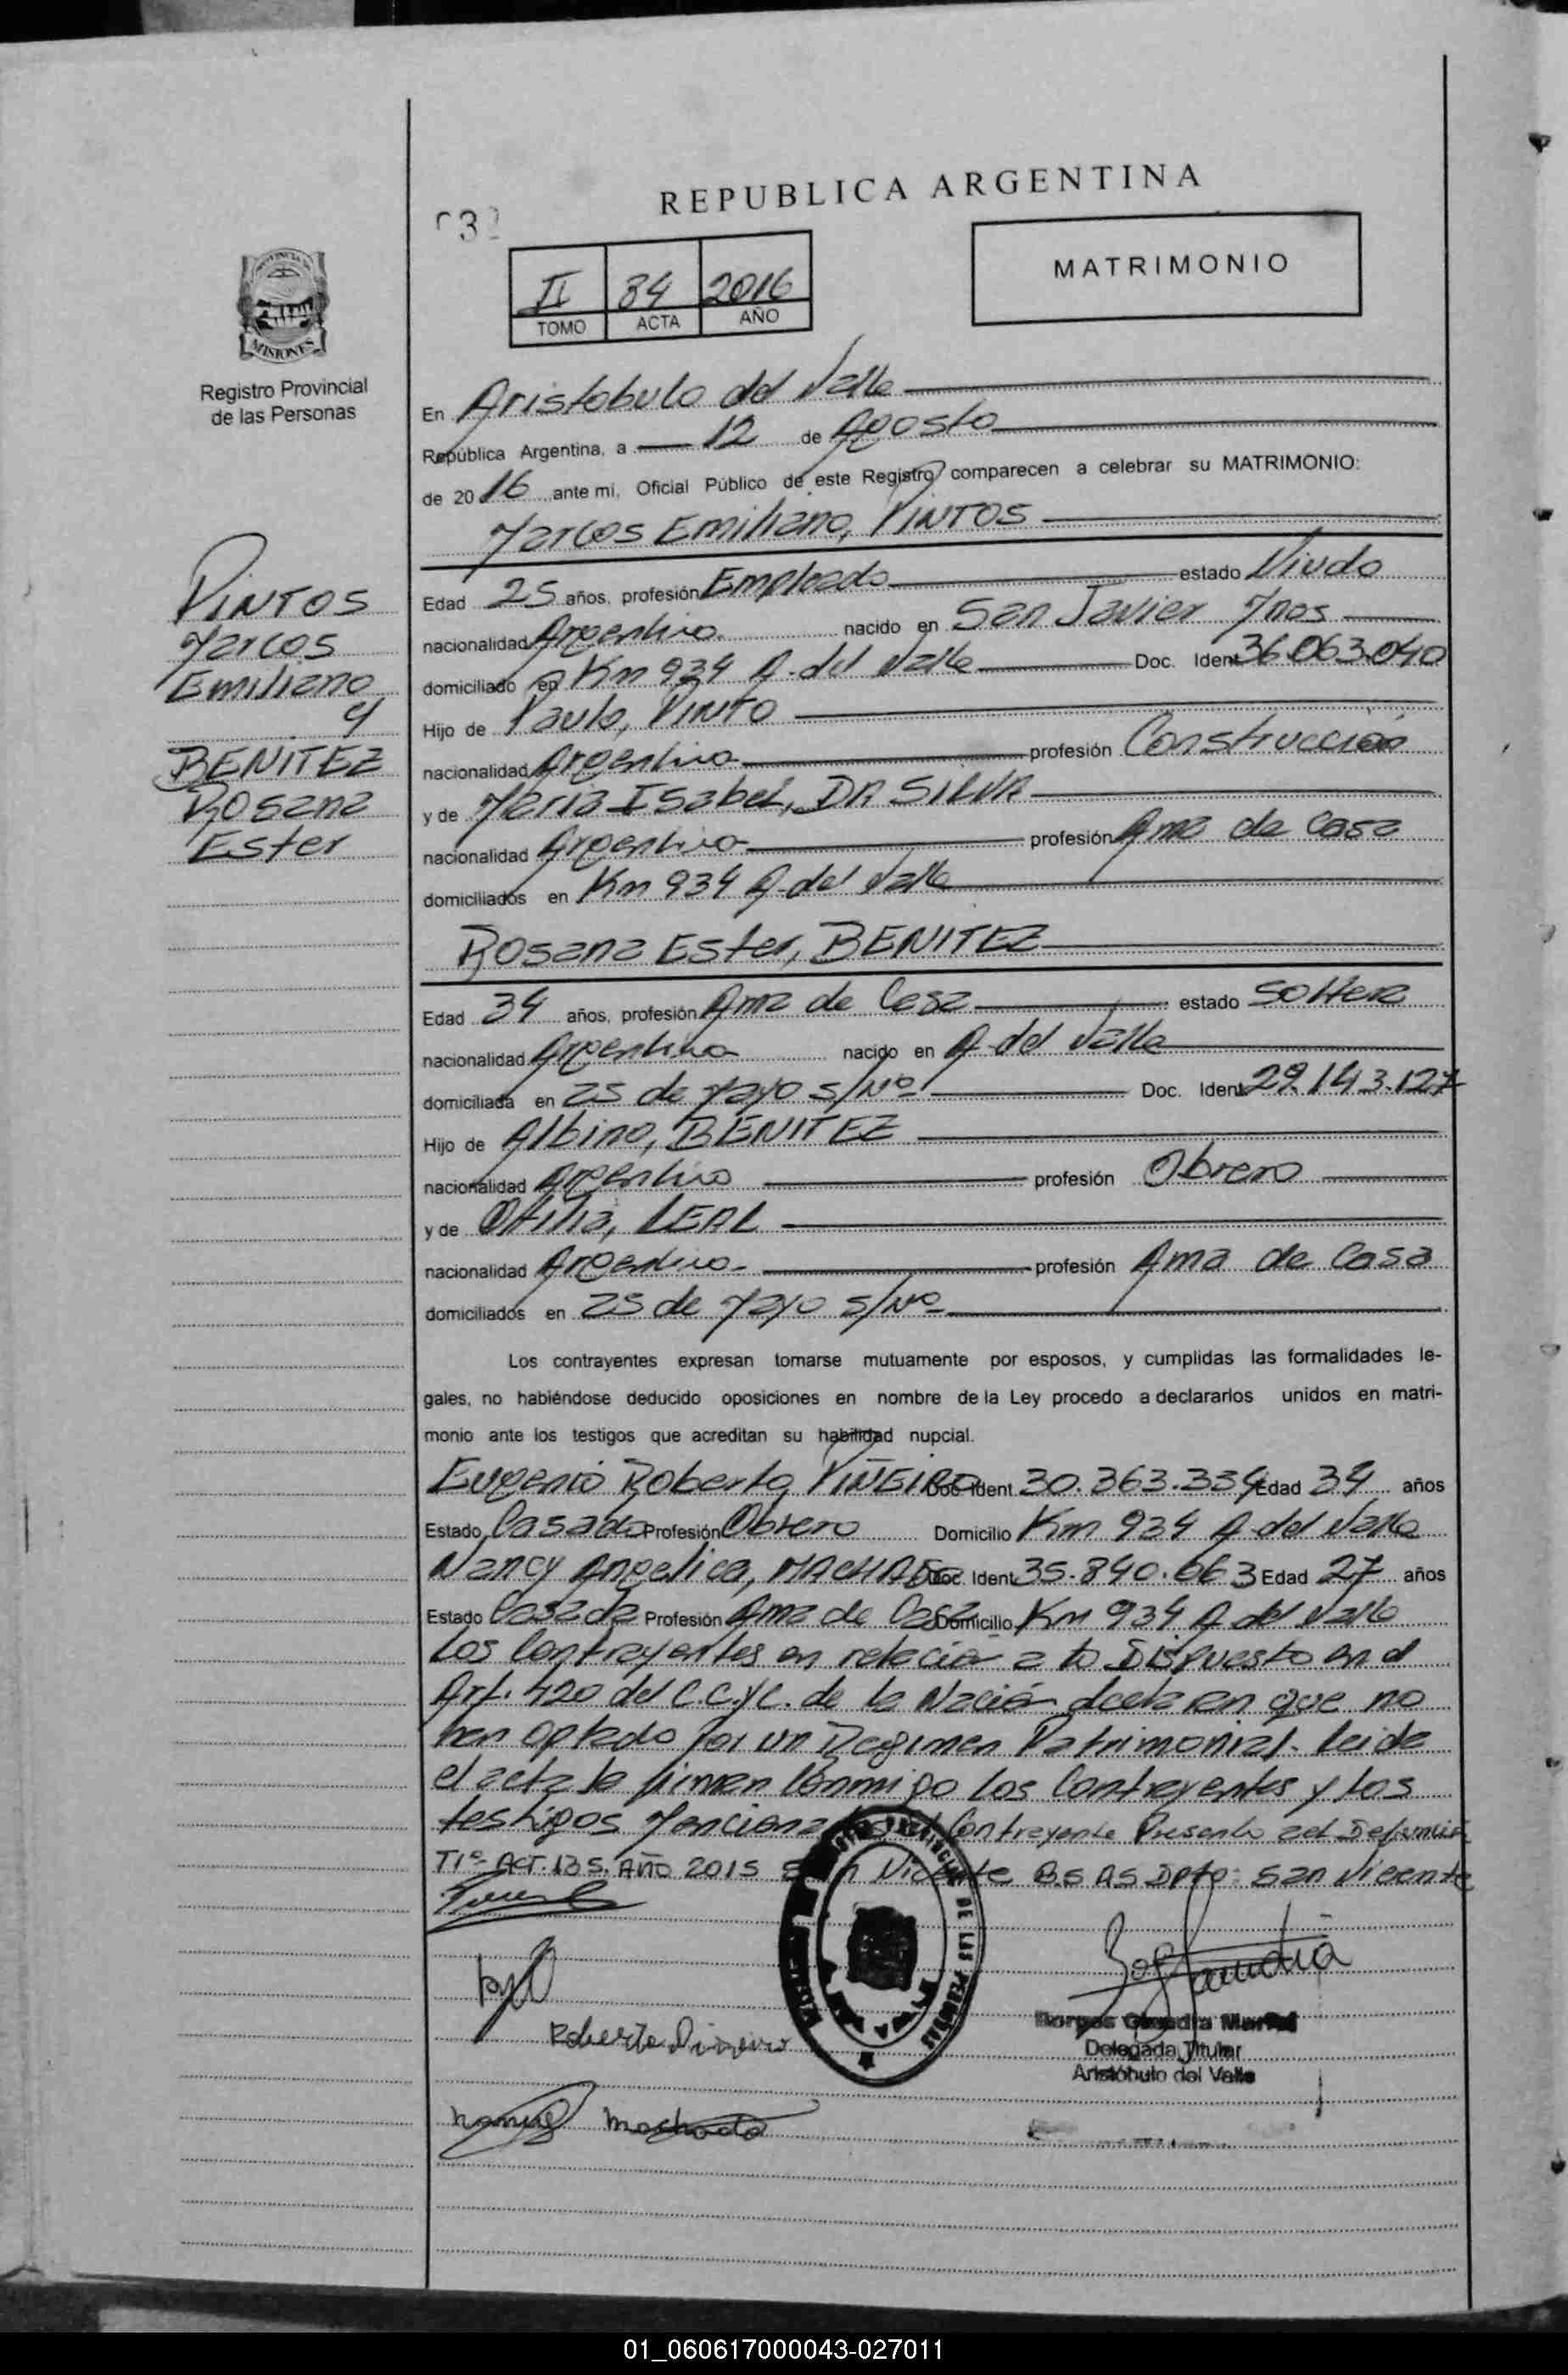 REPUBLICA ARGENTINA
032
II 34 2016
TOMO ACTA AÑO
MATRIMONIO
PROVINCIA DE
MISIONES
Registro Provincial
de las Personas
PINTOS
Marcos
Emiliano
y
BENITEZ
Rosana
Ester
En Aristobulo del Valle
República Argentina, a 12 de Agosto
de 2016 ante mi, Oficial Público de este Registro comparecen a celebrar su MATRIMONIO:
Marcos Emiliano, PINTOS
Edad 25 años, profesión Empleado estado Viudo
nacionalidad Argentina nacido en San Javier Mnes
domiciliado en Km 934 A. del Valle Doc. Ident 36.063.040
Hijo de Paulo, PINTO
nacionalidad Argentina profesión Construcción
y de Maria Isabel, DA SILVA
nacionalidad Argentina profesión Ama de Casa
domiciliados en Km 934 A. del Valle
Rosana Ester, BENITEZ
Edad 34 años, profesión Ama de Casa estado Soltera
nacionalidad Argentina nacido en A. del Valle
domiciliada en 25 de Mayo S/Nº Doc. Ident 29.143.127
Hijo de Albino, BENITEZ
nacionalidad Argentino profesión Obrero
y de Otilia, LEAL
nacionalidad Argentina profesión Ama de Casa
domiciliados en 25 de Mayo S/Nº
Los contrayentes expresan tomarse mutuamente por esposos, y cumplidas las formalidades le-
gales, no habiéndose deducido oposiciones en nombre de la Ley procedo a declararlos unidos en matri-
monio ante los testigos que acreditan su habilidad nupcial.
Eugenio Roberto, PIÑEIRO Doc Ident 30.363.334 Edad 34 años
Estado Casado Profesión Obrero Domicilio Km 934 A. del Valle
Nancy Angelica, MACHADO Doc. Ident 35.840.663 Edad 27 años
Estado Casada Profesión Ama de Casa Domicilio Km 934 A. del Valle
Los Contrayentes en relación a lo Dispuesto en el
Art. 420 del C.C.yC. de la Nación declaran que no
han optado por un Regimen Patrimonial. Leida
el acta la firman conmigo los Contrayentes y los
testigos Contrayente Presento
Tº ACT. 135. Año 2015 San Vicente BS AS Dpto: San Vicente
Roberto Piñeiro
Machado
DE LAS PERSONAS
Delegada Titular
Aristóbulo del Valle
01_060617000043-027011